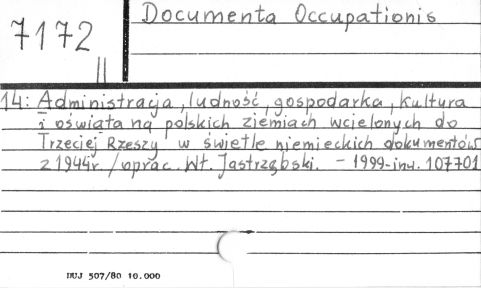 7172
II
Documenta Occupationis
14: Administracja, ludność, gospodarka, kultura
i oświata na polskich ziemiach wcielonych do
Trzeciej Rzeszy w świetle niemieckich dokumentów
z 1944r. / oprac. Wł. Jastrzębski. - 1999 - inw. 107701
DUJ 507/80 10.000